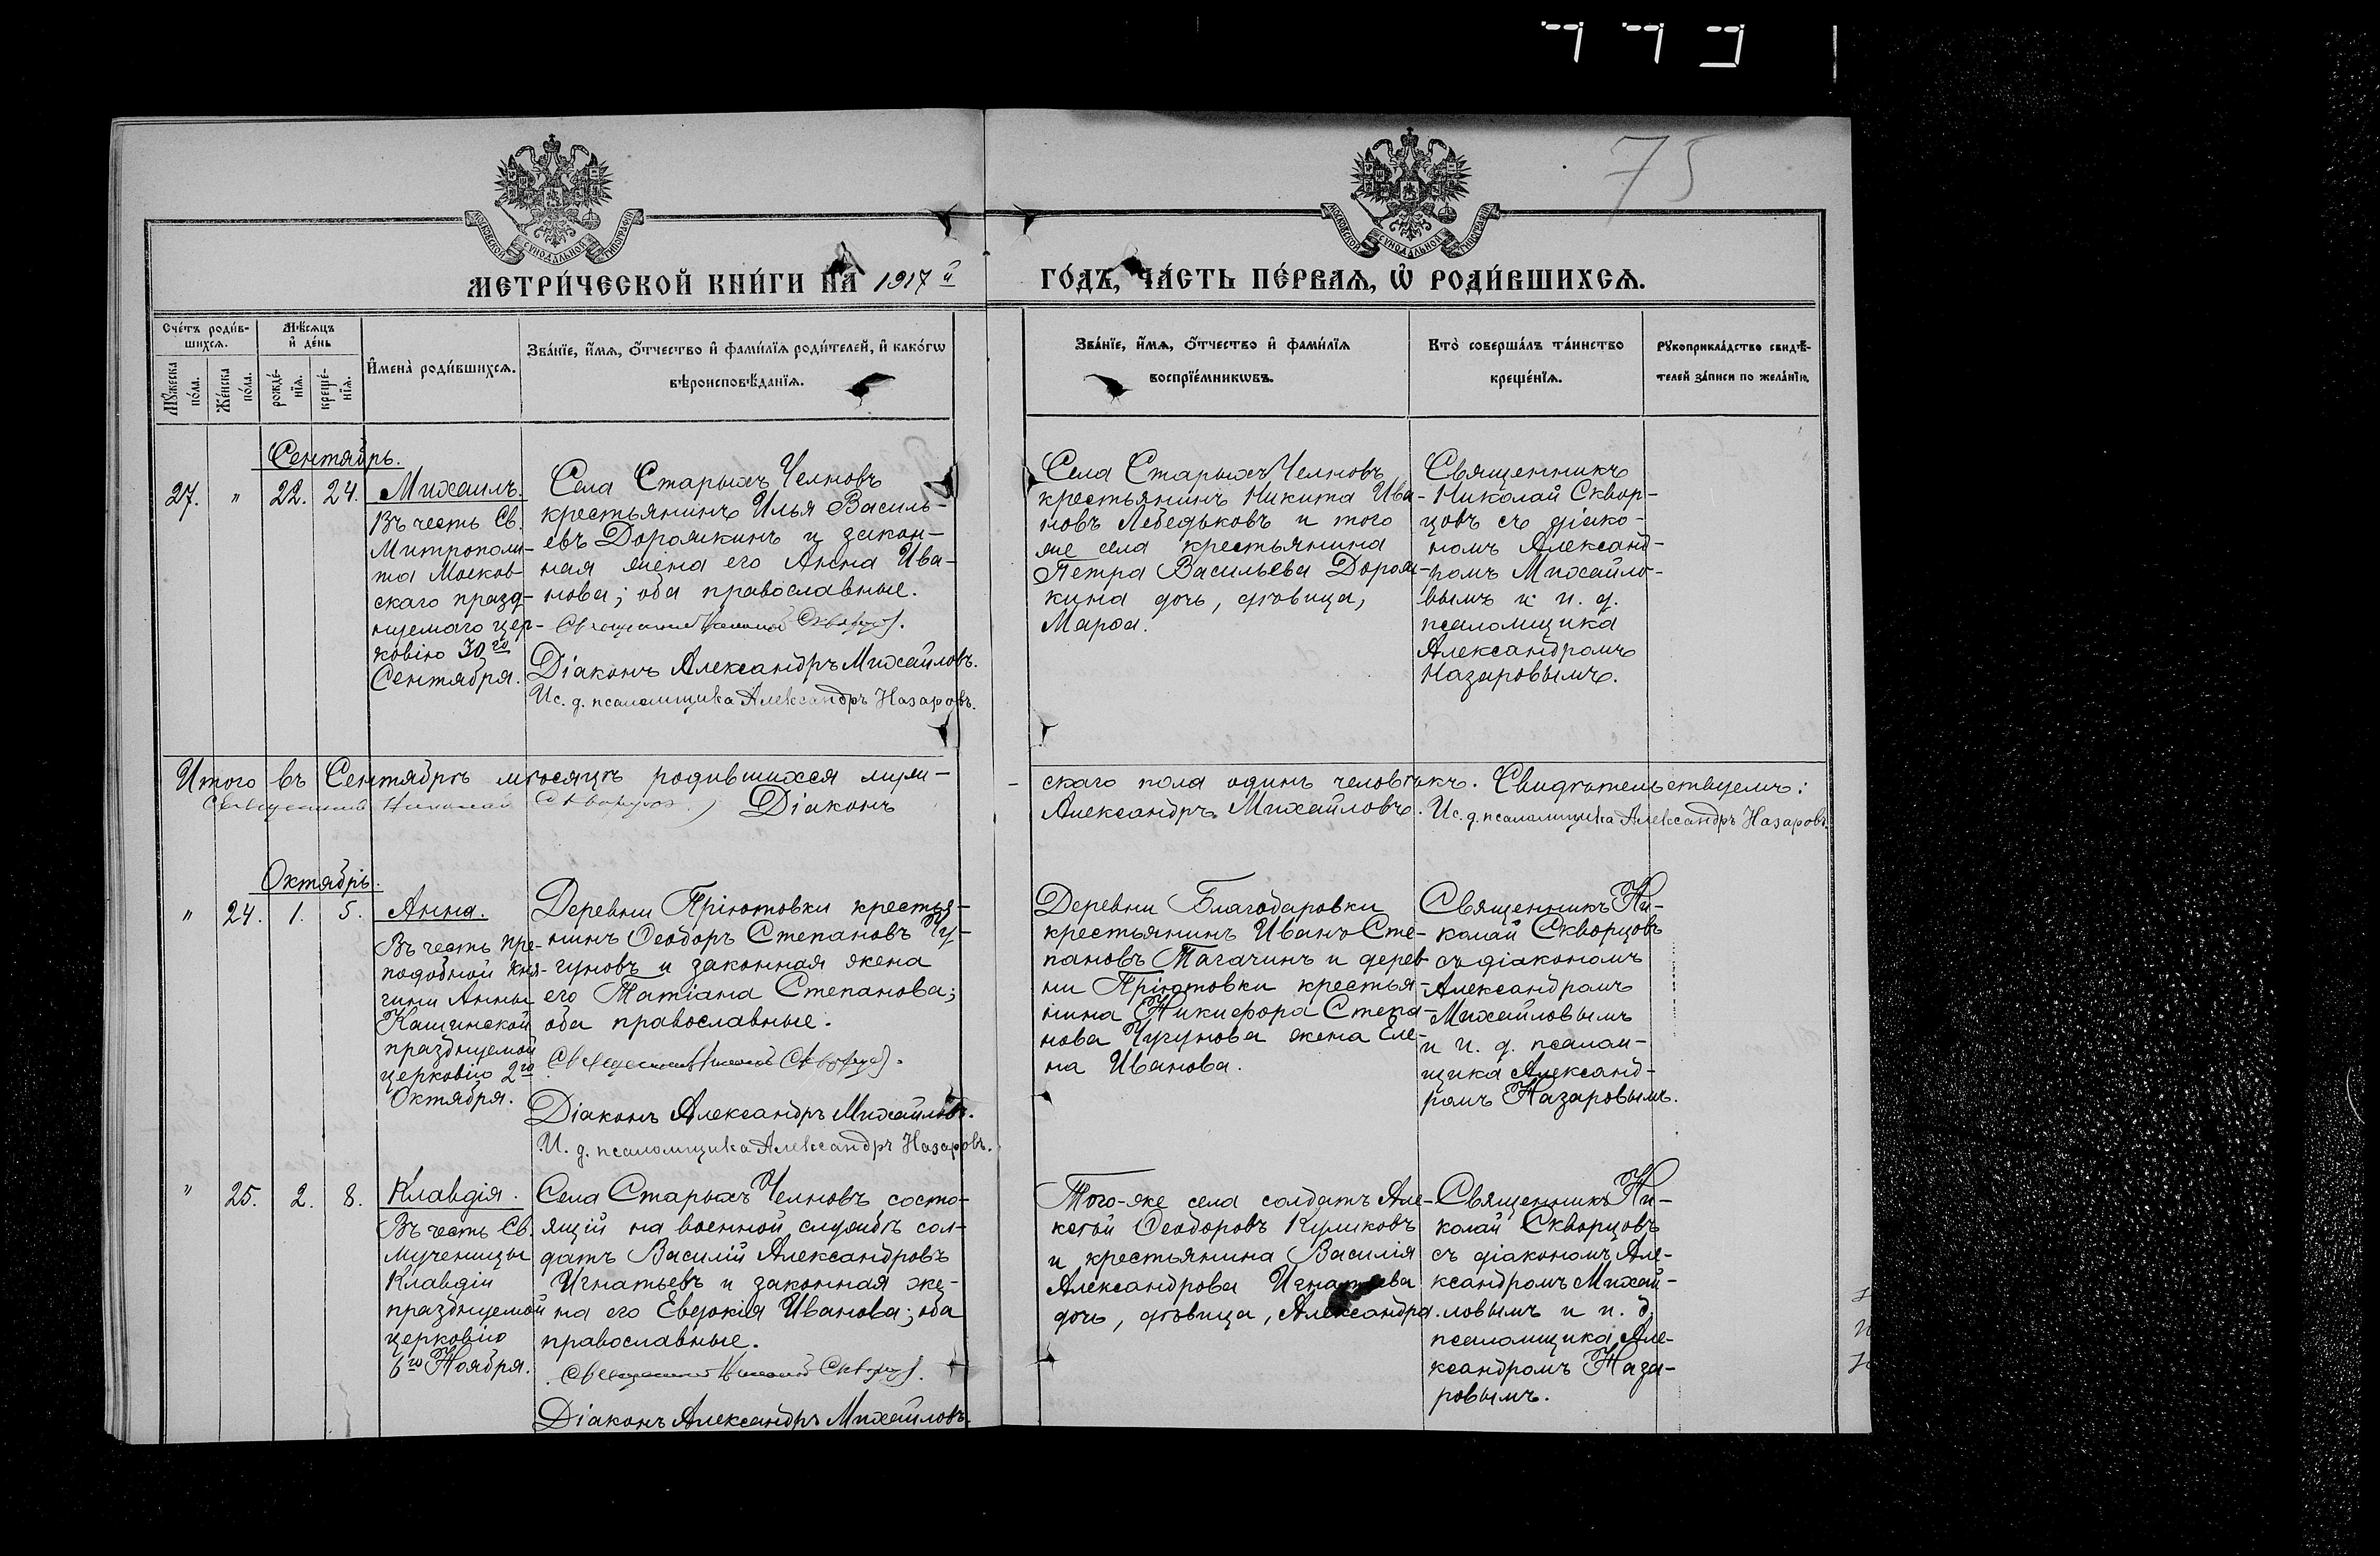 75
МОСКОВСКОЙ СУНОДАЛЬНОЙ ТИПОГРАФІИ
МОСКОВСКОЙ СУНОДАЛЬНОЙ ТИПОГРАФІИ
МЕТРИ́ЧЕСКОЙ КНИ́ГИ НА 1917 й
ГО́ДЪ, ЧА́СТЬ ПЕ́РВАѦ, Ѡ҆ РОДИ́ВШИХСѦ.
Сче́тъ роди́в-
шихсѧ.
Мꙋ́жеска
по́ла.
Же́нска
по́ла.
Мѣ́сѧцъ
и҆ де́нь
рожде́-
нїѧ.
креще́-
нїѧ.
И҆мена̀ роди́вшихсѧ.
Зва́нїе, и҆́мѧ, ѻ҆́тчество и҆ фами́лїѧ роди́телей, и҆ како́гѡ
вѣроисповѣ́данїѧ.
Зва́нїе, и҆́мѧ, ѻ҆́тчество и҆ фами́лїѧ
воспрїе́мникѡвъ.
Кто̀ соверша́лъ та́инство
креще́нїѧ.
Рꙋкоприкла́дство свидѣ́-
телей за́писи по жела́нїю.
Сентябрь.
27. " 22. 24.
Михаилъ.
Въ честь Св.
Митрополи-
та Москов-
скаго празд-
нуемаго цер-
ковію 30го
Сентября.
Села Старыхъ Челновъ
крестьянинъ Илья Василь-
евъ Дорожкинъ и закон-
ная жена его Анна Ива-
нова; оба православные.
Священникъ Николай Скворцовъ.
Діаконъ Александръ Михайловъ.
Ис. д. псаломщика Александръ Назаровъ.
Села Старыхъ Челновъ
крестьянинъ Никита Ива-
новъ Лебедьковъ и того
же села крестьянина
Петра Васильева Дорож-
кина дочь, дѣвица,
Марѳа.
Священникъ
Николай Сквор-
цовъ съ діако-
номъ Александ-
ромъ Михайло-
вымъ и и. д.
псаломщика
Александромъ
Назаровымъ.
Итого въ Сентябрѣ мѣсяцѣ родившихся муже-
скаго пола одинъ человѣкъ. Свидѣтельствуемъ:
Священникъ Николай Скворцовъ, Діаконъ
Александръ Михайловъ. Ис. д. псаломщика Александръ Назаровъ.
Октябрь.
" 24. 1. 5.
Анна.
Въ честь пре-
подобной кня-
гини Анны
Кашинской
празднуемой
церковію 2го
Октября.
Деревни Пріютовки крестья-
нинъ Ѳеодоръ Степановъ Чу-
гуновъ и законная жена
его Татіана Степанова;
оба православные.
Священникъ Николай Скворцовъ.
Діаконъ Александръ Михайловъ.
И. д. псаломщика Александръ Назаровъ.
Деревни Благодаровки
крестьянинъ Иванъ Сте-
пановъ Тагачинъ и дерев-
ни Пріютовки крестья-
нина Никифора Степа-
нова Чугунова жена Еле-
на Иванова.
Священникъ Ни-
колай Скворцовъ
съ діакономъ
Александромъ
Михайловымъ
и и. д. псалом-
щика Александ-
ромъ Назаровымъ.
" 25. 2. 8.
Клавдія.
Въ честь Св.
мученицы
Клавдіи
празднуемой
церковію
6го Ноября.
Села Старыхъ Челновъ состо-
ящій на военной службѣ сол-
датъ Василій Александровъ
Игнатьевъ и законная же-
на его Евдокія Иванова; оба
православные.
Священникъ Николай Скворцовъ.
Діаконъ Александръ Михайловъ.
Того-же села солдатъ Але-
ксѣй Ѳеодоровъ Куликовъ
и крестьянина Василія
Александрова Игнатьева
дочь, дѣвица, Александра.
Священникъ Ни-
колай Скворцовъ
съ діакономъ Але-
ксандромъ Михай-
ловымъ и и. д.
псаломщика Але-
ксандромъ Наза-
ровымъ.